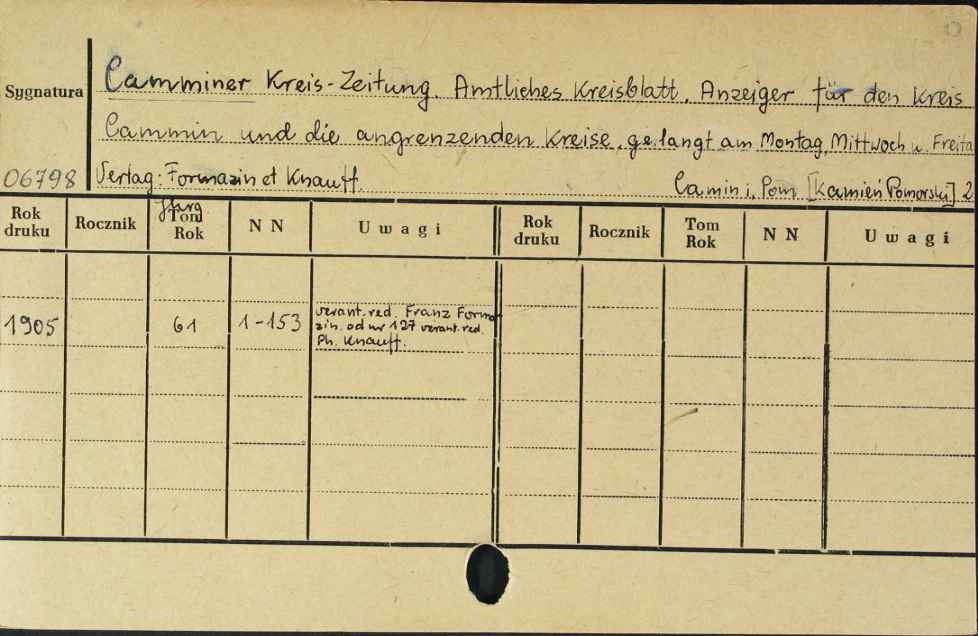 Sygnatura
Camminer Kreis-Zeitung. Amtliches Kreisblatt, Anzeiger für den Kreis
Cammin und die angrenzenden Kreise, gelangt am Montag, Mittwoch u. Freita
06798
Verlag: Formazin et Knauff.
Camin i. Pom [Kamień Pomorski] 2
Jhrg.
Rok druku Rocznik Tom Rok N N Uwagi Rok druku Rocznik Tom Rok N N Uwagi
1905 61 1-153
verant. red. Franz Forma-
zin. od nr 127 verant. red.
Ph. Knauff.